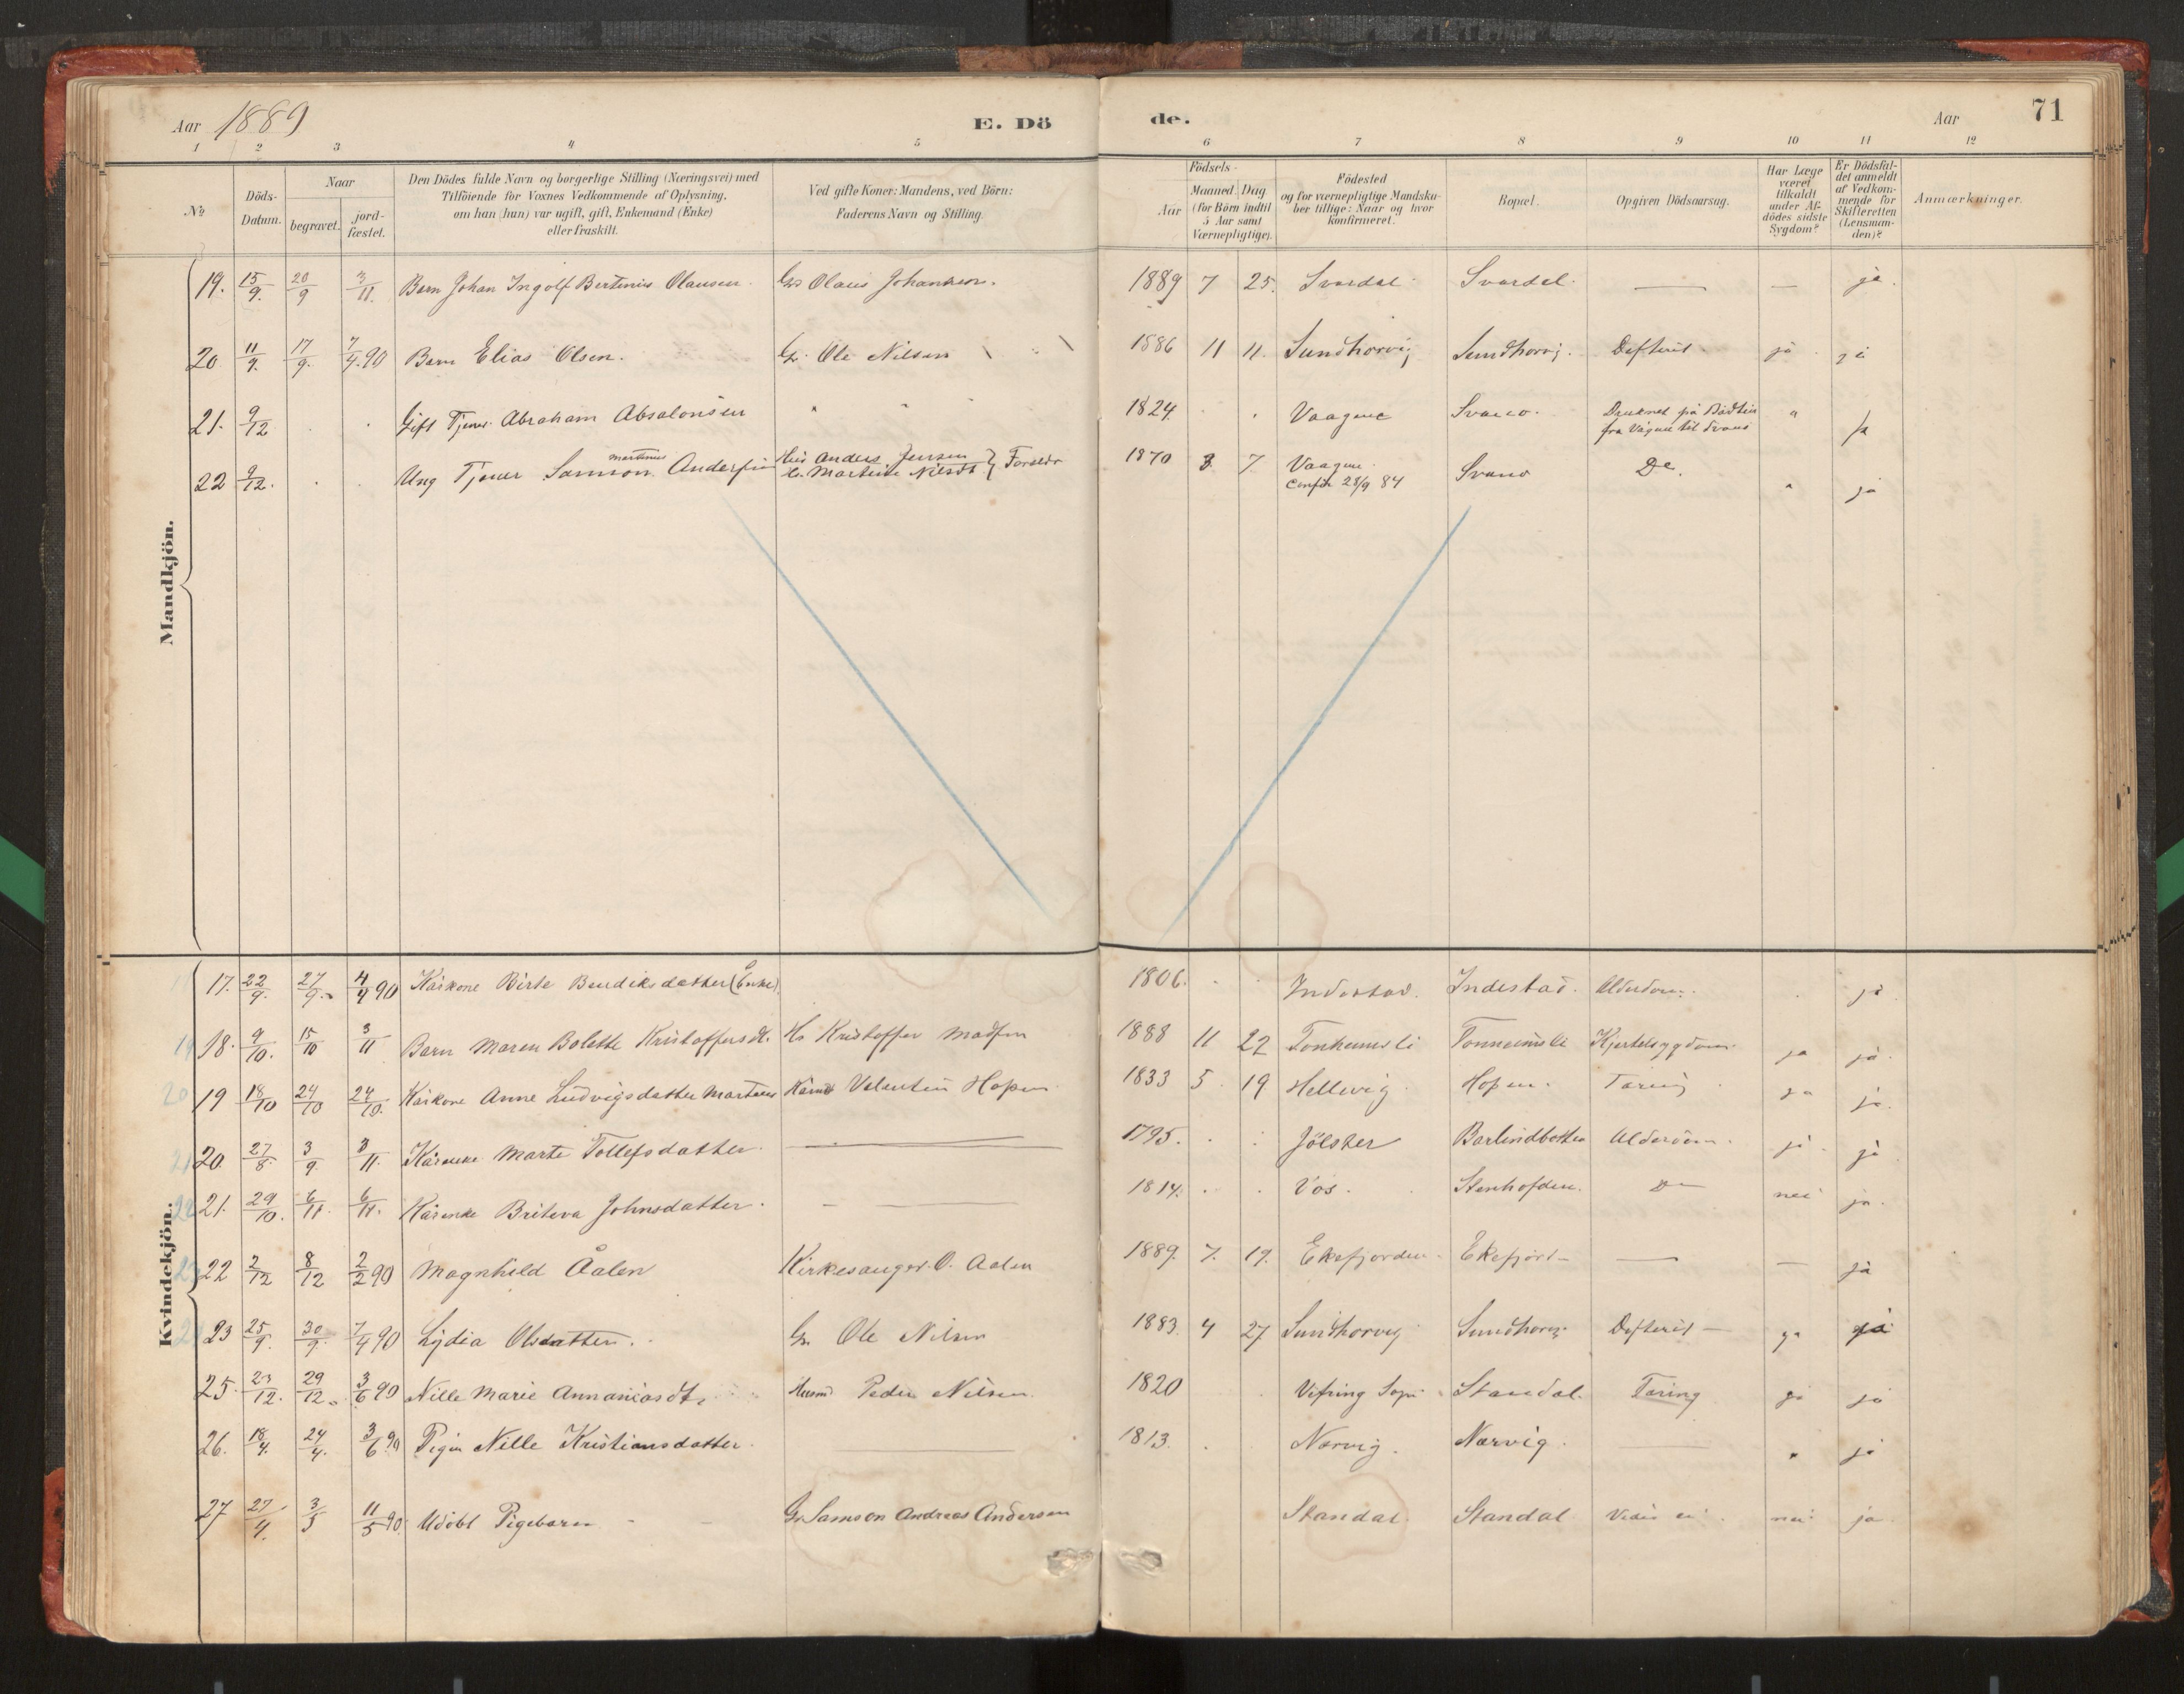 Aar 1889
E. Dö
de.
Aar
71
1 2 3 4 5 6 7 8 9 10 11 12
No
Döds-
Datum.
Naar
begravet.
jord-
fæstet.
Den Dödes fulde Navn og borgerlige Stilling (Næringsvei) med
Tilföiende for Voxnes Vedkommende af Oplysning,
om han (hun) var ugift, gift, Enkemand (Enke)
eller fraskilt.
Ved gifte Koner: Mandens, ved Börn:
Faderens Navn og Stilling.
Födsels-
Aar
Maaned. Dag
(for Börn indtil
5 Aar samt
Værnepligtige).
Födested
og for værnepligtige Mandska-
ber tillige: Naar og hvor
konfirmeret.
Bopæl.
Opgiven Dödsaarsag.
Har Læge
været
tilkaldt
under Af-
dödes sidste
Sygdom?
Er Dödsfal-
det anmeldt
af Vedkom-
mende for
Skifteretten
(Lensman-
den)?
Anmærkninger.
Mandkjön.
19. 15/9. 20/9 3/11. Barn Johan Ingolf Bertinius Olausen. Gr. Olaus Johannsen. 1889 7 25. Svardal Svardal. — — ja.
20 11/9. 17/9. 7/4.90 Barn Elias Olsen. Gr. Ole Nilsen 1886 11 11. Sundhorvig Sundhorvig. Difterit ja ja
21. 9/12 Gift Tjener Abraham Absalonsen 1824. Vaagene Svano. Druknet på Bådtur
fra Vågene til Svanö " ja
martinus
22 9/12. Ung Tjener Samson Andersen Hus Anders Jensen
Martine Nilsdt } Foreldr 1870 3 7 Vaagene
Confir 28/9 84 Svano Do. " ja
Kvindekjön.
17. 22/9. 27/9. 4/4 90 Kårkone Birte Bendiksdatter (Enke). 1806. Indestad. Indestad. Alderdom. ja
18. 9/10. 15/10 3/11 Barn Maren Bolette Kristoffersdt. Hs Kristoffer Madsen 1888 11 22 Tonheimsli Tonneimsli Kjertelsygdom ja ja.
19 18/10 24/10 24/10. Kårkone Anne Ludvigsdatter Martens Kårmd Valentin Hopen 1833 5 19 Hellevig. Hopen. Tæring ja ja.
20. 27/8. 3/9. 3/11. Kårenke Marte Tollefsdatter. — 1795. Jölster Barlindbotten Alderdom. ja ja
21. 29/10. 6/11. 6/11. Kårenke Briteva Johnsdatter. — 1814. Vos. Stenhofden. Do nei ja.
22 2/12 8/12 2/2 90 Magnhild Åalen Kirkesanger O. Aalen 1889. 7. 19. Ekefjorden Ekefjord — — ja
23 25/9. 30/9. 7/4 90 Lydia Olsdatter. Gr. Ole Nilsen 1883. 4 27 Sundhorvig Sundhorvig Difterit — ja ja
25. 23/12. 29/12. 3/6 90 Nille Marie Annaniasdt. Husmd Peder Nilsen 1820 Vefring Standal. Tæring ja ja
26. 18/4. 24/4. 3/6 90 Pigen Nille Kristiansdatter. — 1813. Norvig. Nærvig. — " ja
27 27/4. 3/5 11/5 90 Udöbt Pigebarn Gr. Samson Andreas Andersen Standal. Standal. Vides ei. nei ja